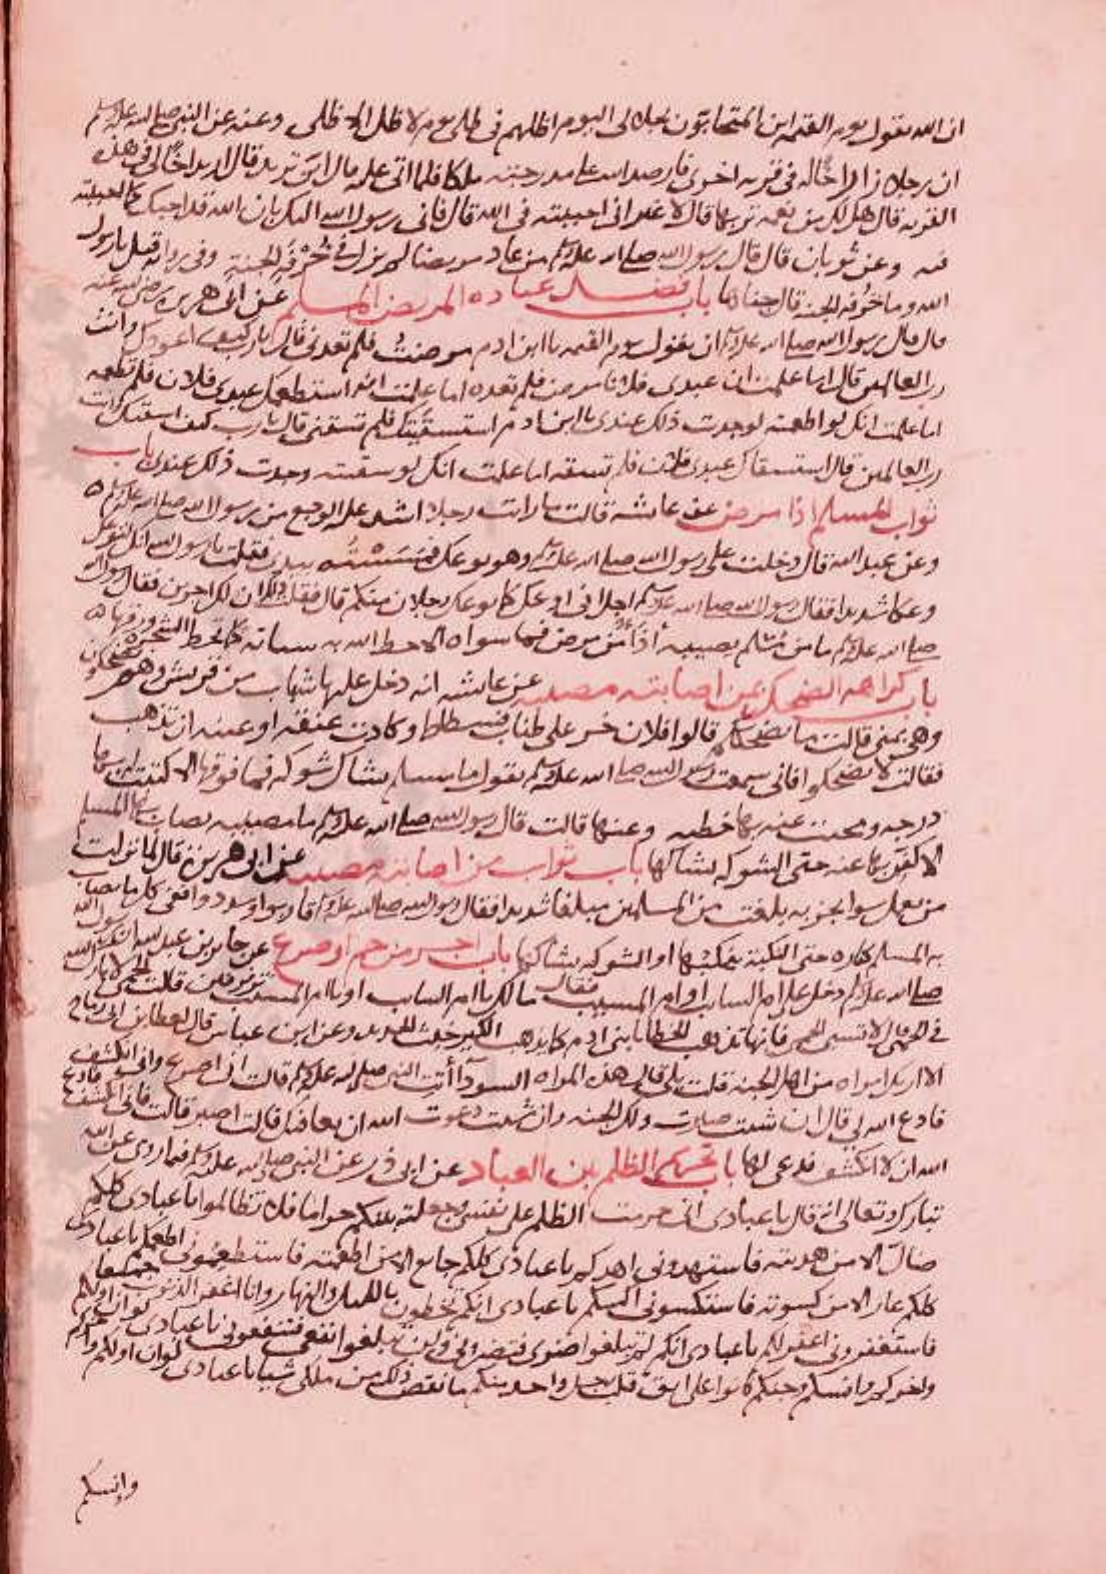 ان الله يقول يوم القيمة اين المتحابون بجلالى اليوم اظلهم فى ظلى يوم لا ظل الا ظلى وعنه عن النبى صلى الله عليه وسلم
ان رجلا زار اخا له فى قرية اخرى فارصد الله على مدرجته ملكا فلما اتى عليه قال اين تريد قال اريد اخا لى فى هذه
القرية قال هل لك من نعمة تربها قال لا غير انى احببته فى الله قال فانى رسول الله اليك بان الله قد احبك كما احببته
فيه وعن ثوبان قال قال رسول الله صلى الله عليه وسلم من عاد مريضا لم يزل فى خرفة الجنة وفى رواية قيل يا رسول
الله وما خرفة الجنة قال جناها باب فضل عيادة المريض المسلم عن ابى هريرة رضى الله عنه
قال قال رسول الله صلى الله عليه وسلم ان يقول يوم القيمة يا ابن ادم مرضت فلم تعدنى قال يا رب كيف اعودك وانت
رب العالمين قال اما علمت ان عبدى فلانا مرض فلم تعده اما علمت انه استطعمك عبدى فلان فلم تطعمه
اما علمت انك لو اطعمته لوجدت ذلك عندى يا ابن ادم استسقيتك فلم تسقنى قال يا رب كيف اسقيك وانت
رب العالمين قال استسقاك عبدى فلان فلم تسقه اما علمت انك لو سقيته وجدت ذلك عندى باب
ثواب المسلم اذا مرض عن عائشة قالت ما رايت رجلا اشد عليه الوجع من رسول الله صلى الله عليه وسلم
وعن عبد الله قال دخلت على رسول الله صلى الله عليه وسلم وهو يوعك فمسسته بيدى فقلت يا رسول الله انك لتوعك
وعكا شديدا فقال رسول الله صلى الله عليه وسلم اجل انى اوعك كما يوعك رجلان منكم قال فقلت ذلك ان لك اجرين فقال رسول الله
صلى الله عليه وسلم ما من مسلم يصيبه اذى من مرض فما سواه الا حط الله به سياته كما تحط الشجرة ورقها
باب كراهية الضحك عن اصابته مصيبة عن عايشة انه دخل عليها شباب من قريش وهم يضحكون
وهى بمنى قالت ما يضحككم قالوا فلان خر على طناب فسطاط وكادت عنقه او عينه ان تذهب
فقالت لا تضحكوا فانى سمعت رسول الله صلى الله عليه وسلم يقول ما مسلم يشاك شوكة فما فوقها الا كتبت له بها
درجة ومحيت عنه بها خطية وعنها قالت قال رسول الله صلى الله عليه وسلم ما مصيبة يصاب بها المسلم
الا كفر بها عنه حتى الشوكة يشاكها باب ثواب من اصابته مصيبة عن ابى هريرة قال لما نزلت
من يعمل سوا يجز به بلغت من المسلمين مبلغا شديدا فقال رسول الله صلى الله عليه وسلم قاربوا وسددوا ففى كل ما يصاب
به المسلم كفارة حتى النكبة ينكبها او الشوكة يشاكها باب اجر من حم او صرع عن جابر بن عبد الله ان رسول الله
صلى الله عليه وسلم دخل على ام السايب او ام المسيب فقال ما لك يا ام السايب او يا ام المسيب تزفزفين قالت الحمى لا بارك الله
فى الحمى قال لا تسبى الحمى فانها تذهب الخطايا بنى ادم كما يذهب الكير خبث الحديد وعن ابن عباس قال لعطا بن ابى رباح
الا اريك امراة من اهل الجنة قلت بلى قال هذه المراة السودا أتت النبى صلى الله عليه وسلم قالت انى اصرع وانى اتكشف
فادع الله لى قال ان شئت صبرت ولك الجنة وان شئت دعوت الله ان يعافيك قالت اصبر قالت فانى اتكشف فادع
الله ان لا اتكشف فدعى لها باب تحريم الظلم بين العباد عن ابى ذر عن النبى صلى الله عليه وسلم فيما روى عن الله
تبارك وتعالى انه قال يا عبادى انى حرمت الظلم على نفسى وجعلته بينكم حراما فلا تظالموا يا عبادى كلكم
ضال الا من هديته فاستهدونى اهدكم يا عبادى كلكم جايع الا من اطعمته فاستطعمونى اطعمكم يا عبادى
كلكم عار الا من كسوته فاستكسونى اكسكم يا عبادى انكم تخطون بالليل والنهار وانا اغفر الذنوب جميعا
فاستغفرونى اغفر لكم يا عبادى انكم لن تبلغوا ضرى فتضرونى ولن تبلغوا نفعى فتنفعونى يا عبادى لو ان اولكم
واخركم وانسكم وجنكم كانوا على اتقى قلب رجل واحد منكم ما نقص ذلك من ملكى شيا يا عبادى لو ان اولكم واخركم
وانسكم